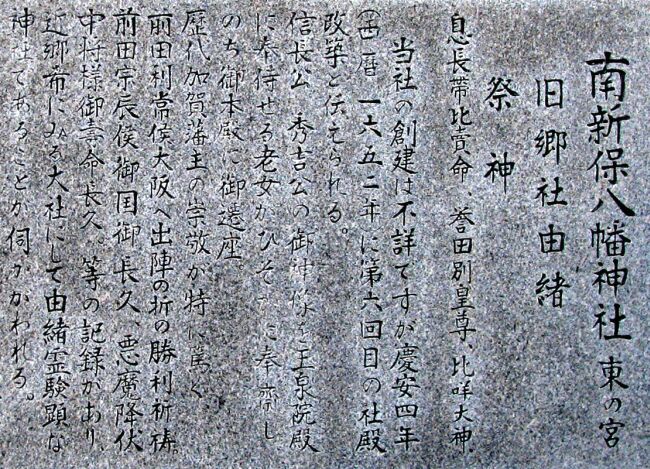 南新保八幡神社 東の宮
旧郷社由緒
祭神
息長帯比売命、誉田別皇尊、比咩大神、
当社の創建は不詳ですが慶安四年
(西暦一六五二年に第六回目の社殿
改築と伝えられる。
信長公 秀吉公の御神像を玉泉院殿
に奉侍せる老女がひそかに奉斎し
のち御本殿に御遷座。
歴代加賀藩主の崇敬が特に篤く
前田利常侯大阪へ出陣の折の勝利祈祷。
前田宗辰侯御国御長久、悪魔降伏
中将様御寿命長久。等の記録があり、
近郷布にみる大社にして由緒霊験顕な
神社であることが伺がかわれる。